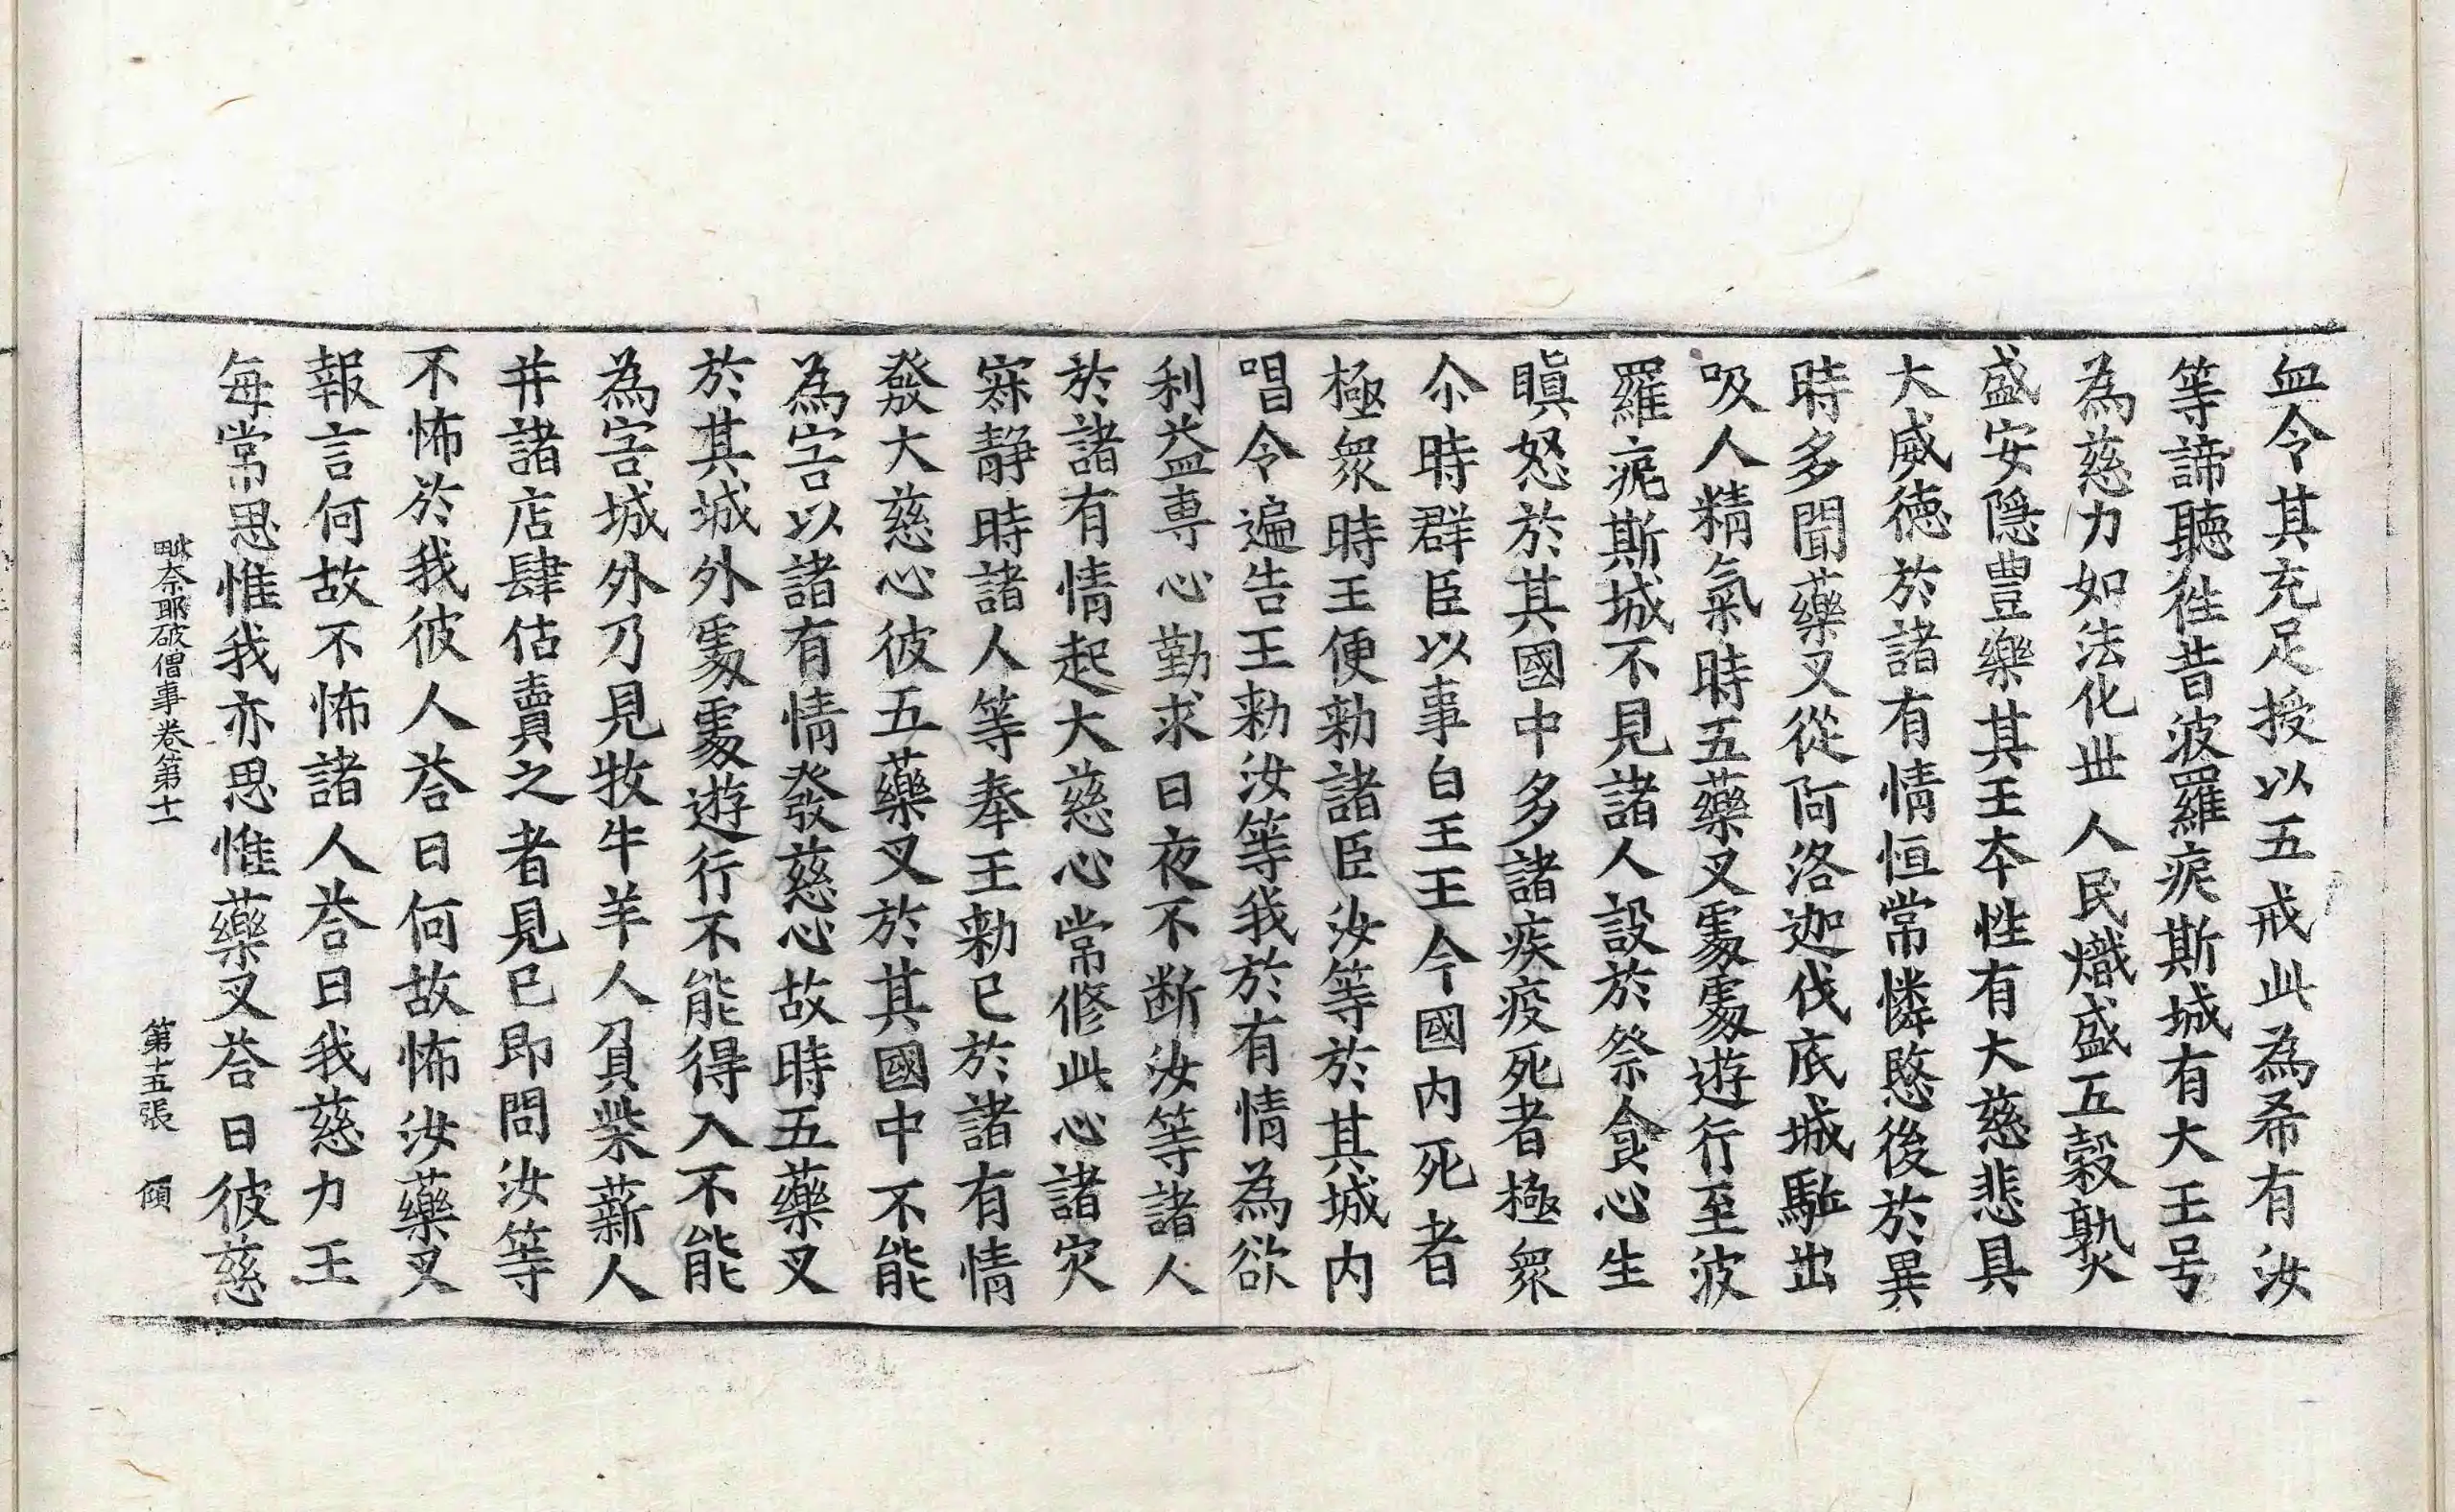 血令其充足授以五戒此為希有汝
等諦聽徃昔波羅痆斯城有大王号
為慈力如法化世人民熾盛五穀熟
盛安隱豊樂其王夲性有大慈悲具
大威徳於諸有情恒常憐愍後於異
時多聞藥叉從阿洛迦伐底城駈出
吸人精氣時五藥叉䖏䖏遊行至波
羅痆斯城不見諸人設於祭食心生
瞋怒於其國中多諸疾疫死者極衆
尒時群臣以事白王王今國内死者
極衆時王便勑諸臣汝等於其城内
唱令遍告王勑汝等我於有情為欲
利益專心勤求日夜不断汝等諸人
於諸有情起大慈心常修此心諸灾
寐靜時諸人等奉王勑已於諸有情
發大慈心彼五藥叉於其國中不能
為害以諸有情發慈心故時五藥叉
於其城外䖏䖏遊行不能得入不能
為害城外乃見牧牛羊人負柴薪人
并諸店肆估賣之者見已即問汝等
不怖於我彼人荅曰何故怖汝藥叉
報言何故不怖諸人荅曰我慈力王
每常思惟我亦思惟藥叉荅曰彼慈
毗奈耶破僧事卷第十一 第十五張 傾